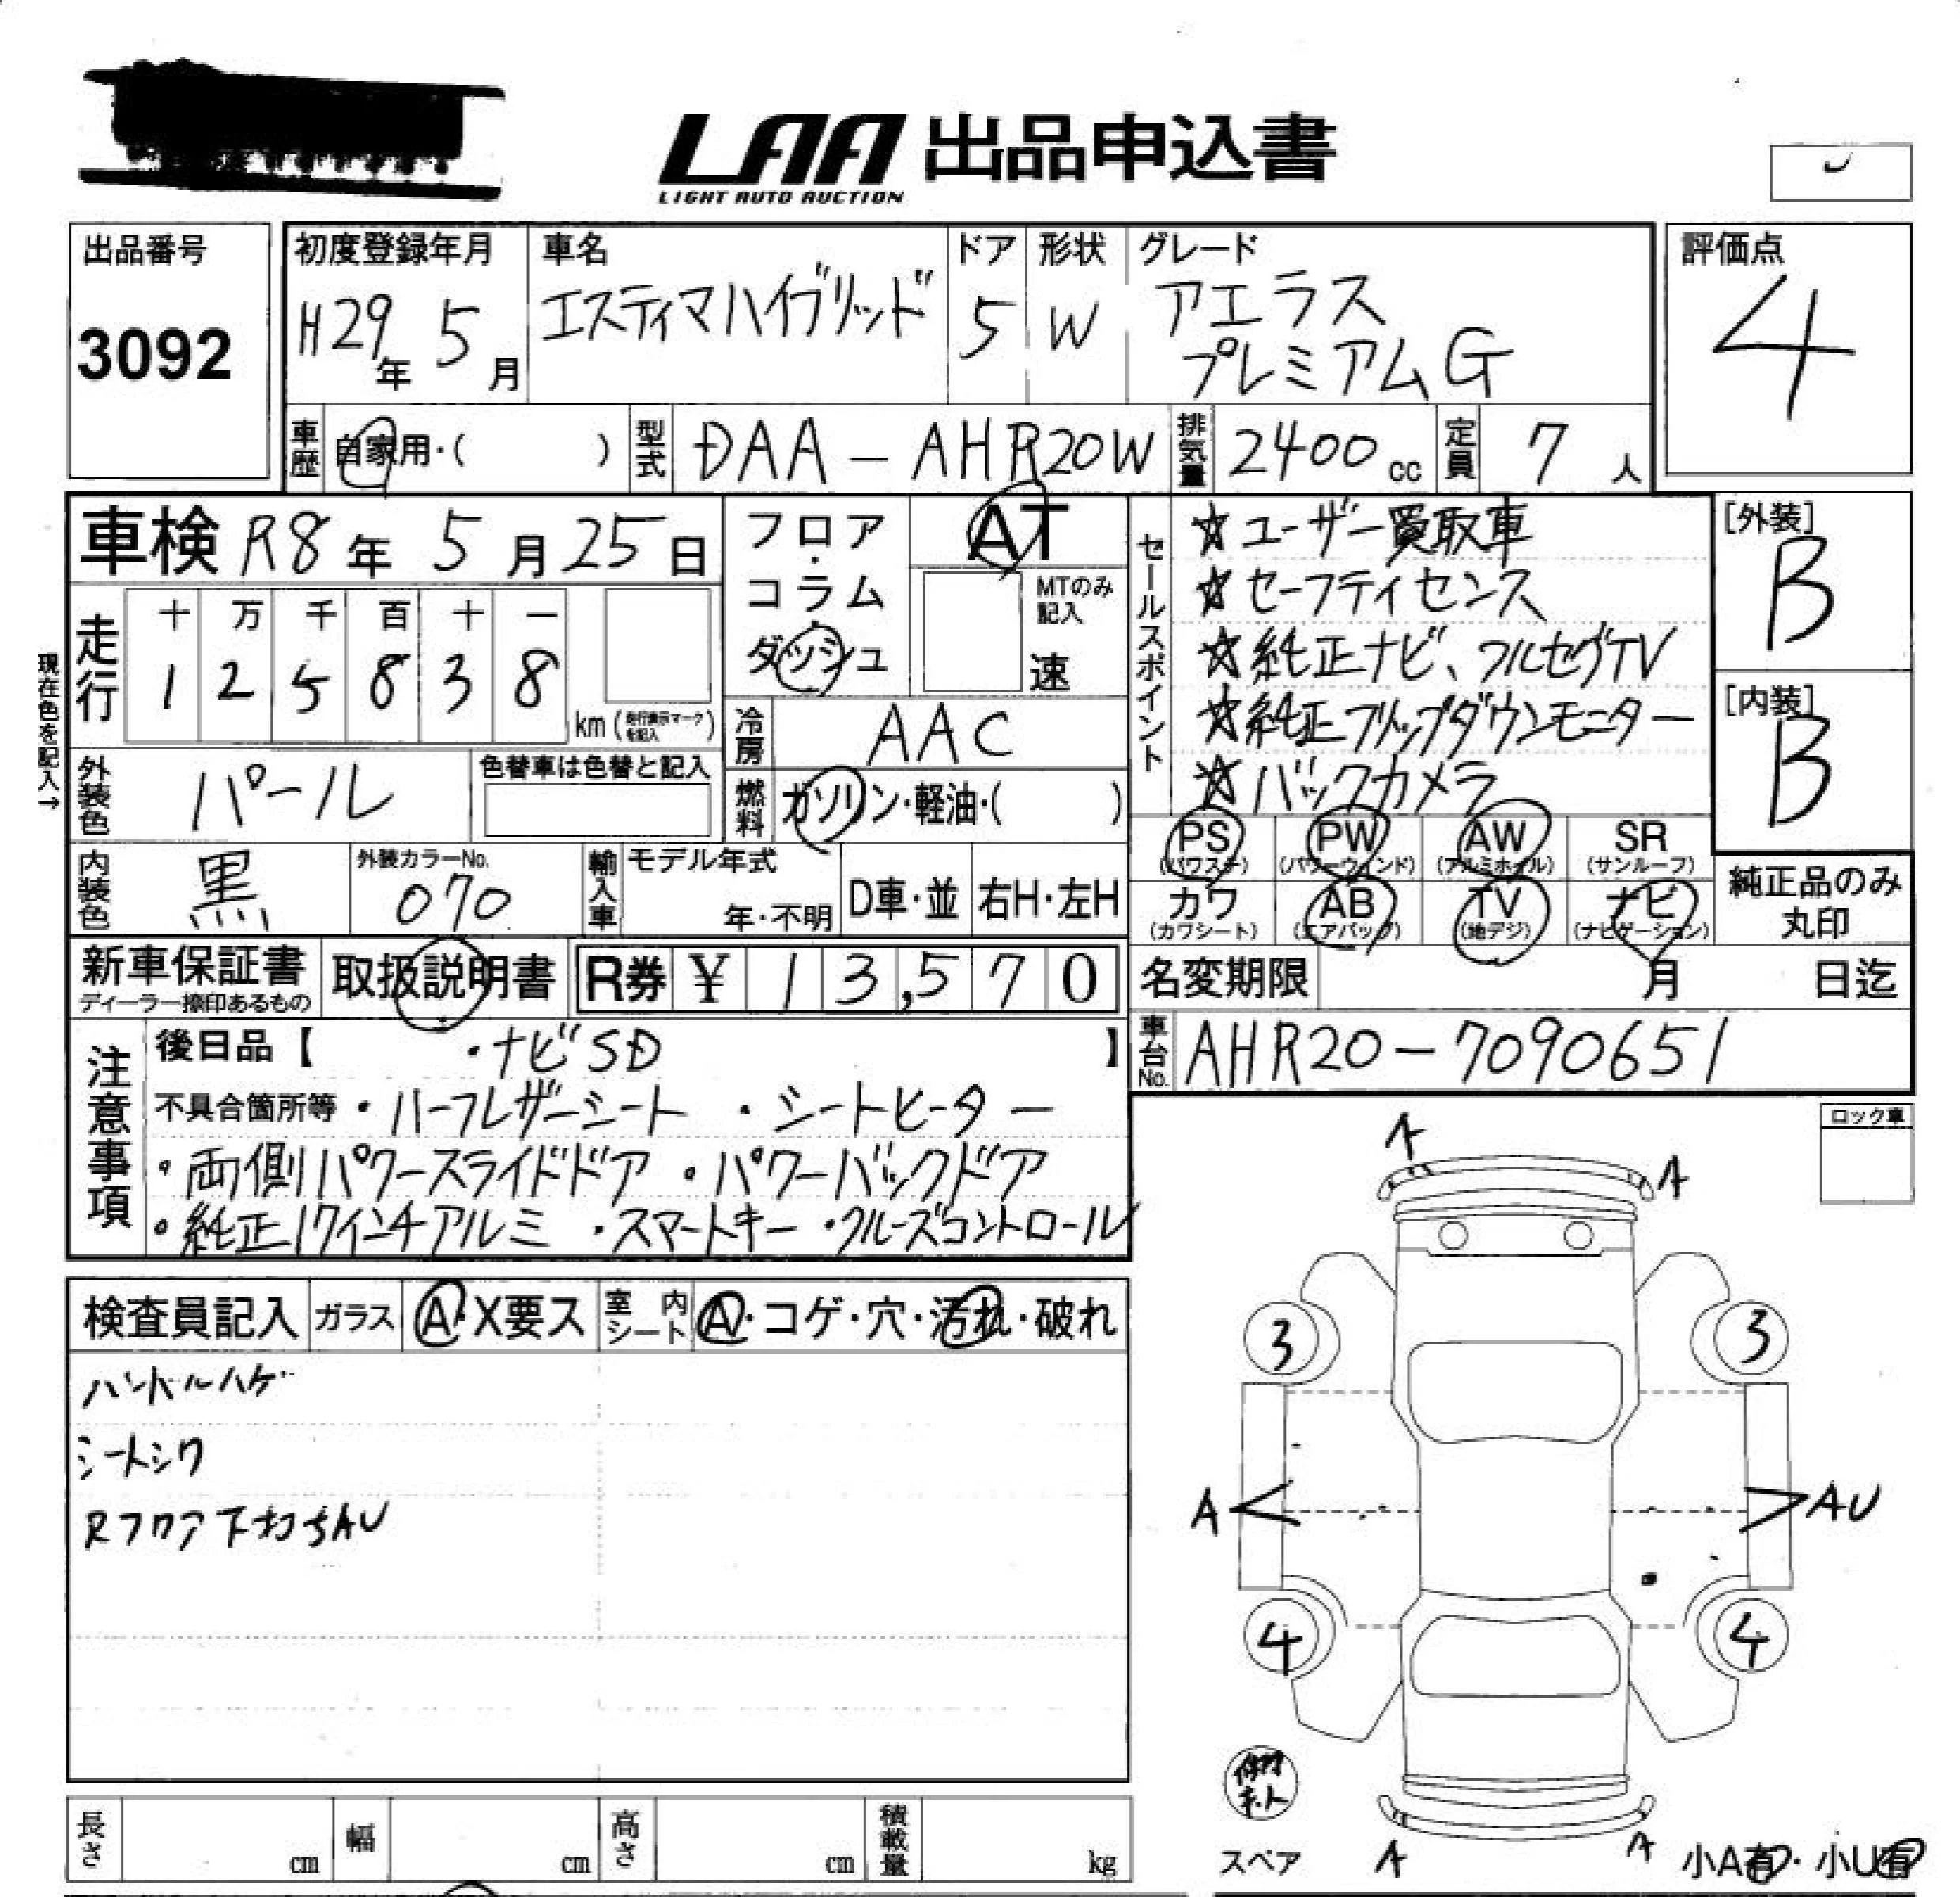 LAA 出品申込書
LIGHT AUTO AUCTION
出品番号
3092
初度登録年月
H29年 5月
車名
エスティマハイブリッド
ドア
5
形状
W
グレード
アエラス
プレミアムG
評価点
4
車歴 自家用・( )
型式 DAA-AHR20W
排気量 2400 cc
定員 7 人
車検 R8年 5月25日
走行
十 万 千 百 十 一
1 2 5 8 3 8
km (走行表示マークを記入)
現在色を記入→
外装色 パール
色替車は色替と記入
内装色 黒
外装カラーNo.
070
フロア・コラム・ダッシュ
AT
MTのみ記入
速
冷房 AAC
燃料 ガソリン・軽油・( )
輸入車
モデル年式
年・不明
D車・並
右H・左H
セールスポイント
☆ユーザー買取車
☆セーフティセンス
☆純正ナビ、フルセグTV
☆純正フリップダウンモニター
☆バックカメラ
[外装]
B
[内装]
B
PS (パワステ)
PW (パワーウィンド)
AW (アルミホイル)
SR (サンルーフ)
カワ (カワシート)
AB (エアバッグ)
TV (地デジ)
ナビ (ナビゲーション)
純正品のみ
丸印
新車保証書
ディーラー捺印あるもの
取扱説明書
R券 ¥ 13,570
名変期限 月 日迄
車台No. AHR20-7090651
注意事項
後日品【 ・ナビSD 】
不具合箇所等 ・ハーフレザーシート ・シートヒーター
・両側パワースライドドア ・パワーバックドア
・純正17インチアルミ ・スマートキー ・クルーズコントロール
ロック車
検査員記入
ガラス A・X要ス
室内シート A・コゲ・穴・汚れ・破れ
ハンドルハゲ
シートシワ
Rフロア下打ちAU
A
A
3
3
A
AU
4
4
スペア
A
A
小A有・小U有
長さ cm
幅 cm
高さ cm
積載量 kg